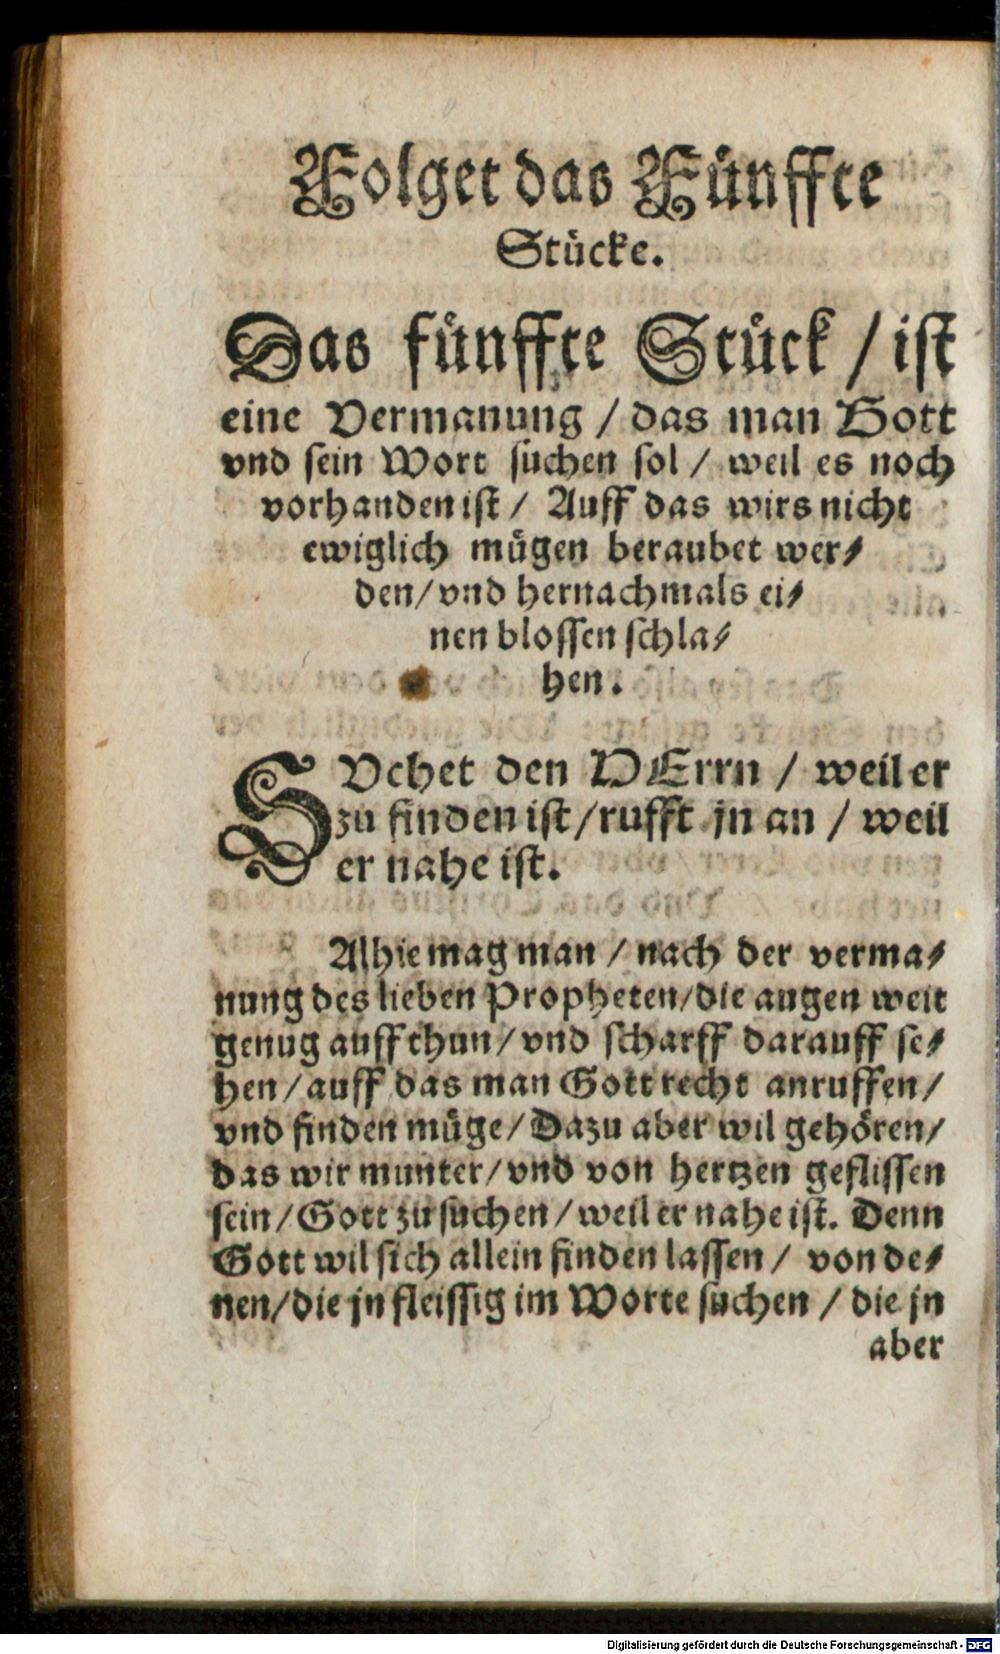 Folget das Fünffte
Stücke.
Das fünffte Stück / ist
eine Vermanung / das man Gott
vnd sein Wort suchen sol / weil es noch
vorhanden ist / Auff das wirs nicht
ewiglich mügen beraubet wer⸗
den / vnd hernachmals ei⸗
nen blossen schla⸗
hen.
SVchet den HErrn / weil er
zu finden ist / rufft jn an / weil
er nahe ist.
Alhie mag man / nach der verma⸗
nung des lieben Propheten / die augen weit
genug auff thun / vnd scharff darauff se⸗
hen / auff das man Gott recht anruffen /
vnd finden müge / Dazu aber wil gehören /
das wir munter / vnd von hertzen geflissen
sein / Gott zu suchen / weil er nahe ist. Denn
Gott wil sich allein finden lassen / von de⸗
nen / die jn fleissig im Worte suchen / die jn
aber
Digitalisierung gefördert durch die Deutsche Forschungsgemeinschaft - DFG